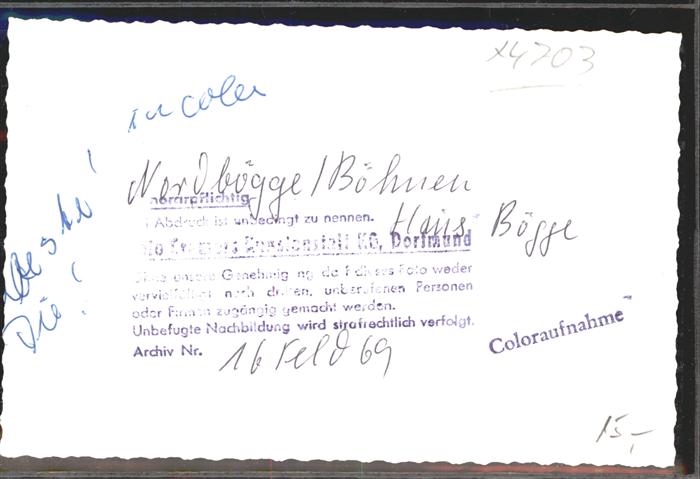 x4703
in color
Nordbögge/Böhnen
norarpflichtig
Abdruck ist unbedingt zu nennen.
Haus Bögge
KG, Dortmund
ohne unsere Genehmig ng da f dieses Foto weder
vervielfältigt noch dritten, unberufenen Personen
oder Firmen zugängig gemacht werden.
Unbefugte Nachbildung wird strafrechtlich verfolgt.
Archiv Nr. 16 Feld 69
Coloraufnahme
Die!
15,-